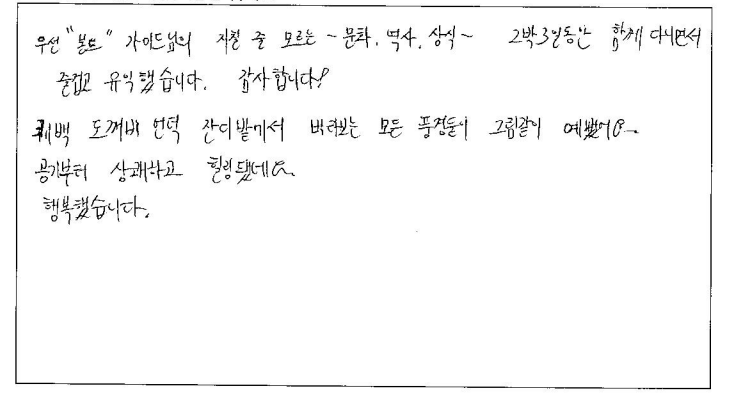 우선 "본드" 가이드님의 지칠 줄 모르는 ~ 문화, 역사, 상식 ~ 2박3일동안 함께 다니면서
즐겁고 유익했습니다. 감사합니다!
퀘백 도깨비 언덕 잔디밭에서 바라보는 모든 풍경들이 그림같이 예뻤어요~
공기부터 상쾌하고 힐링됐네요~
행복했습니다.